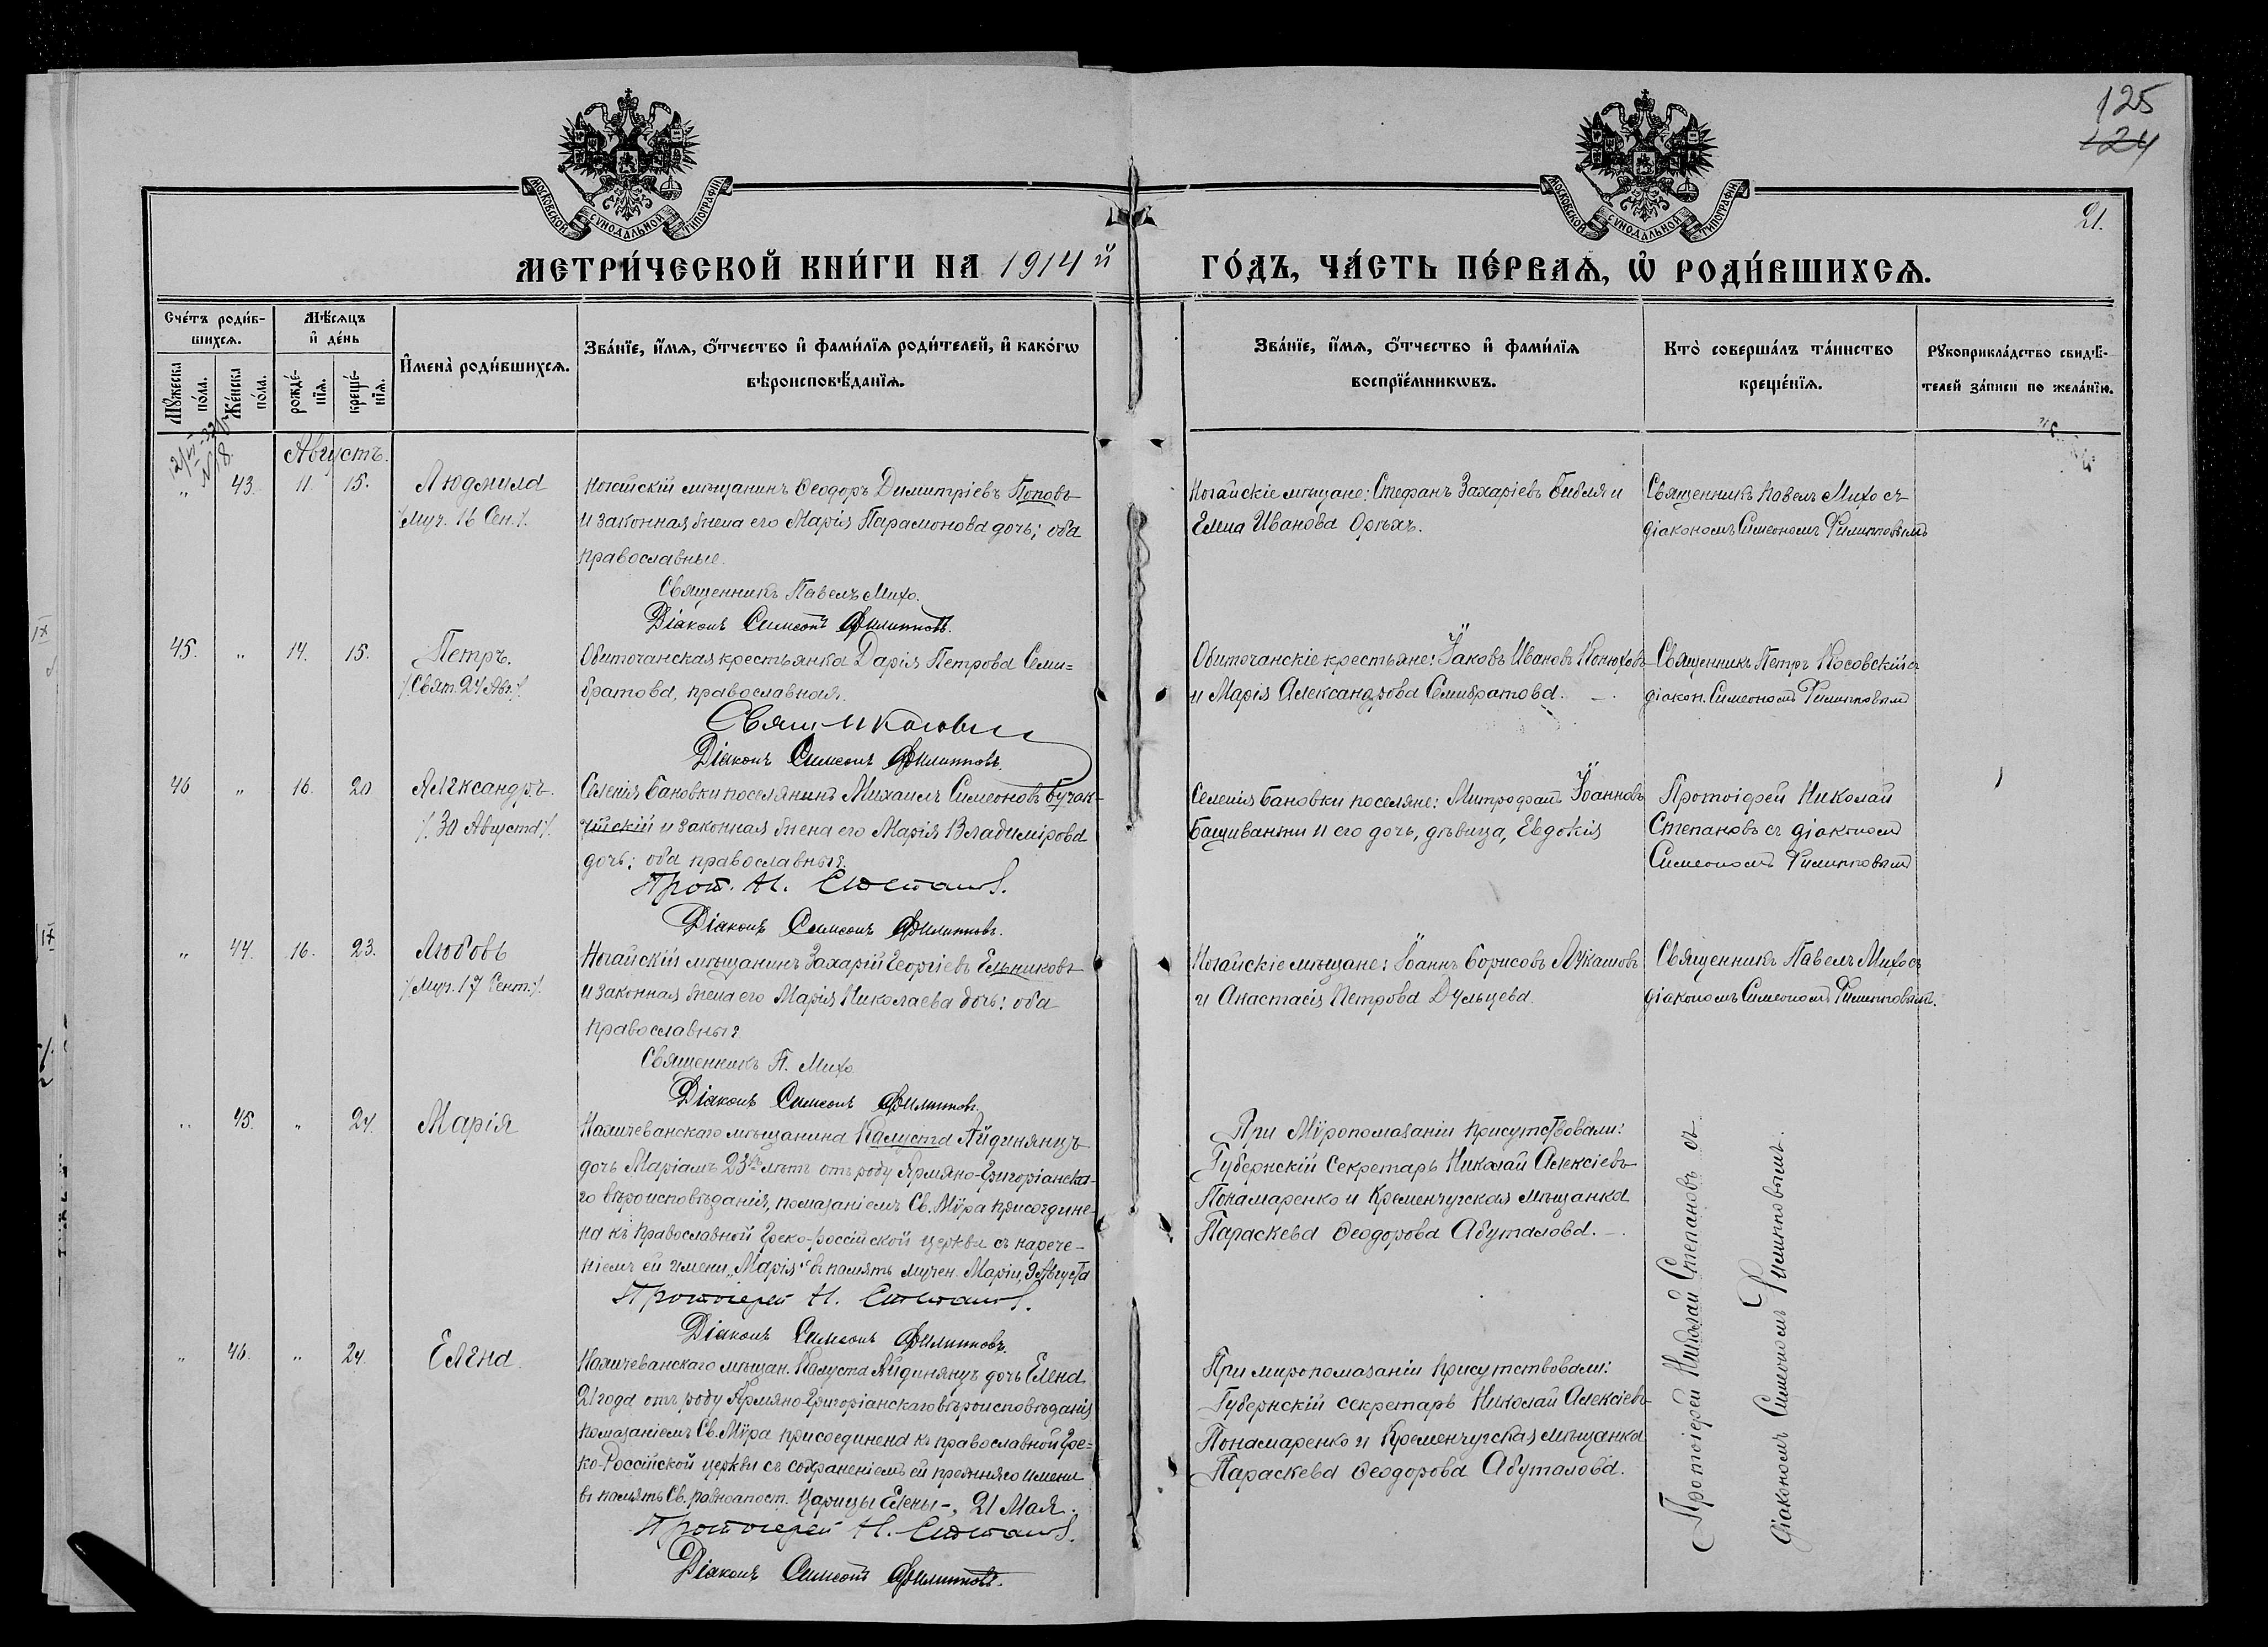 125
124
21.
МОСКОВСКОЙ СУНОДАЛЬНОЙ ТИПОГРАФІИ
МОСКОВСКОЙ СУНОДАЛЬНОЙ ТИПОГРАФІИ
МЕТРИ́ЧЕСКОЙ КНИ́ГИ НА 1914й
ГО́ДЪ, ЧА́СТЬ ПЕ́РВАѦ, Ѡ҆ РОДИ́ВШИХСѦ.
Сче́тъ роди́в-
шихсѧ.
Мѣ́сѧцъ
и҆ де́нь
Мꙋ́жеска
по́ла.
Же́нска
по́ла.
рожде́-
нїѧ.
креще́-
нїѧ.
И҆мена̀ роди́вшихсѧ.
Зва́нїе, и҆́мѧ, ѻ҆́тчество и҆ фами́лїѧ роди́телей, и҆ како́гѡ
вѣроисповѣ́данїѧ.
Зва́нїе, и҆́мѧ, ѻ҆́тчество и҆ фами́лїѧ
воспрїе́мникѡвъ.
Кто̀ соверша́лъ та́инство
креще́нїѧ.
Рꙋкоприкла́дство свидѣ́-
телей за́писи по жела́нїю.
Августъ.
„ 43. 11. 15. Людмила
/Муч. 16 Сен./.
Ногайскій мѣщанинъ Ѳеодоръ Димитріевъ Поповъ
и законная жена его Марія Парамонова дочь; оба
православные.
Священникъ Павелъ Михо.
Діаконъ Симеонъ Филипповъ.
Ногайскіе мѣщане: Стефанъ Захаріевъ Библя и
Елена Иванова Орѣхъ.
Священникъ Павелъ Михо съ
діакономъ Симеономъ Филипповымъ
45. „ 14. 15. Петръ.
/.Свят. 24 Авг./.
Обиточанская крестьянка Дарія Петрова Семи=
братова, православная.
Діаконъ Симеонъ Филипповъ.
Обиточанскіе крестьяне: Іаковъ Ивановъ Конюховъ
и Марія Александрова Семибратова.
Священникъ Петръ Косовскій съ
діакон. Симеономъ Филипповымъ
46 „ 16. 20 Александръ.
/. 30 Августа/.
Селенія Бановки поселянинъ Михаилъ Симеоновъ Бузак-
чійскій и законная жена его Марія Владимірова
дочь: оба православныя.
Прот. Н. Степановъ.
Діаконъ Симеонъ Филипповъ.
Селенія Бановки поселяне: Митрофанъ Іоанновъ
Бащиванжи и его дочь, дѣвица, Евдокія
Протоіерей Николай
Степановъ съ діакономъ
Симеономъ Филипповымъ
„ 44. 16. 23. Любовь
/.Муч. 17 Сент./.
Ногайскій мѣщанинъ Захарій Георгіевъ Ельниковъ
и законная жена его Марія Николаева дочь: оба
православныя
Священникъ П. Михо
Діаконъ Симеонъ Филипповъ.
Ногайскіе мѣщане: Іоаннъ Борисовъ Лукашовъ
и Анастасія Петрова Дульцева.
Священникъ Павелъ Михо съ
діакономъ Симеономъ Филипповымъ.
„ 45. „ 24. Марія
Нахичеванскаго мѣщанина Калуста Айдинянцъ
дочь Маріамъ 23хъ лѣтъ отъ роду Армяно-Григоріанска-
го вѣроисповѣданія, помазаніемъ Св. Мѵра присоедине-
на къ православной Греко-россійской церкви съ нарече-
ніемъ ей имени „Марія" въ память мучен. Маріи, 9 Августа
Протоіерей Н. Степановъ.
Діаконъ Симеонъ Филипповъ.
При Мѵропомазаніи присутствовали:
Губернскій Секретарь Николай Алексіевъ
Понамаренко и Кременчугская мѣщанка
Параскева Ѳеодорова Абуталова.
Протоіерей Николай Степановъ съ
діакономъ Симеономъ Филипповымъ.
„ 46. „ 24. Елена
Нахичеванскаго мѣщан. Калуста Айдинянцъ дочь Елена
21 года отъ роду Армяно-Григоріанскаго вѣроисповѣданія
помазаніемъ Св. Мѵра присоединена къ православной Гре=
ко-Россійской церкви съ сохраненіемъ ей прежняго имени
въ память Св. равноапост. Царицы Елены -, 21 Мая.
Протоіерей Н. Степановъ.
Діаконъ Симеонъ Филипповъ.
При миропомазаніи присутствовали:
Губернскій секретарь Николай Алексіевъ
Понамаренко и Кременчугская мѣщанка
Параскева Ѳеодорова Абуталова.